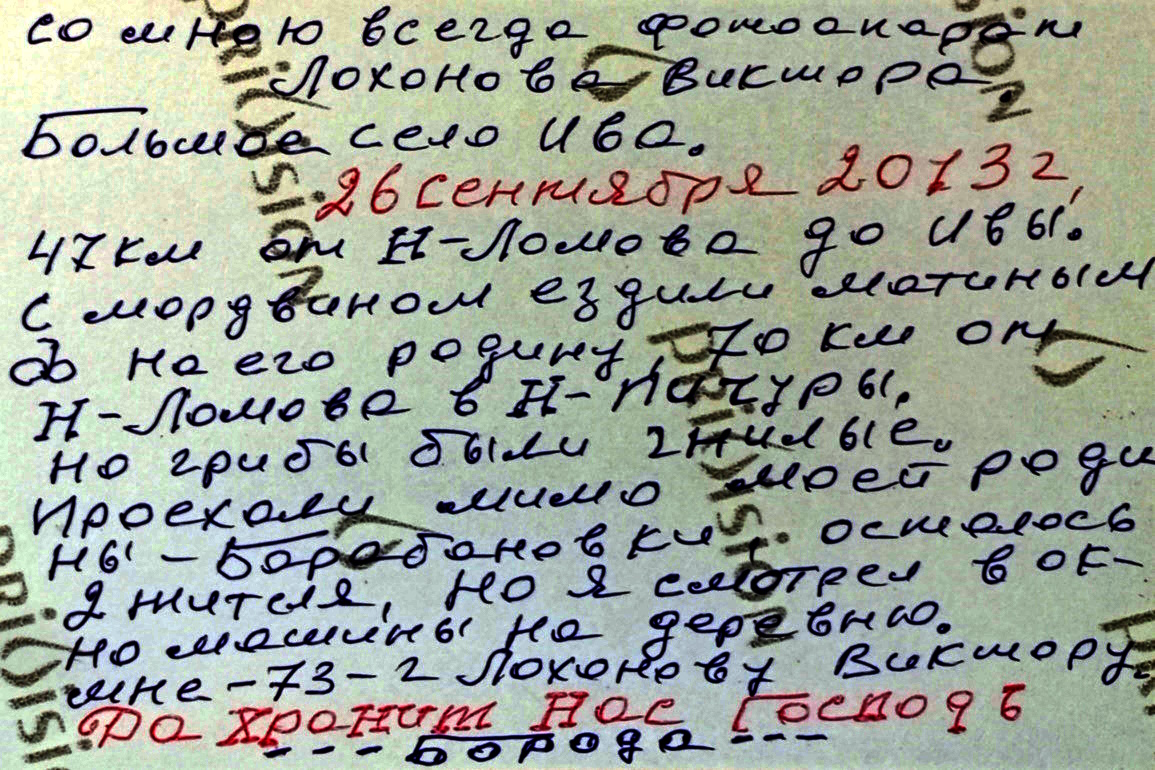 со мною всегда фотоапарат
Лохонова Виктора.
Большое село Ива.
26 сентября 2013 г,
47 км от Н-Ломова до Ивы.
С мордвином ездили
на его родину, 70 км от
Н-Ломова в Н-Пичуры.
но грибы были гнилые.
Проехали мимо моей роди
ны - Барабановки, осталось
2 жителя, но я смотрел в ок-
но машины на деревню.
мне - 73 - г Лохонову Виктору.
Да хранит Нас Господь
--- Борода ---